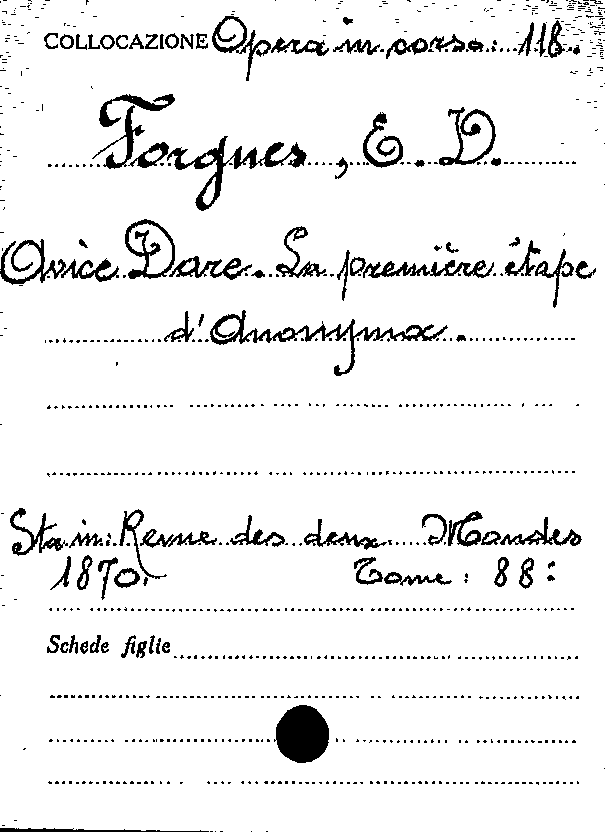 COLLOCAZIONE Opera in corso: 118.
Forgues, E. D.
Avice Dare. La première étape
d'Anonyma.
Sta in: Revue des deux Mondes
1870. Tome: 88:
Schede figlie